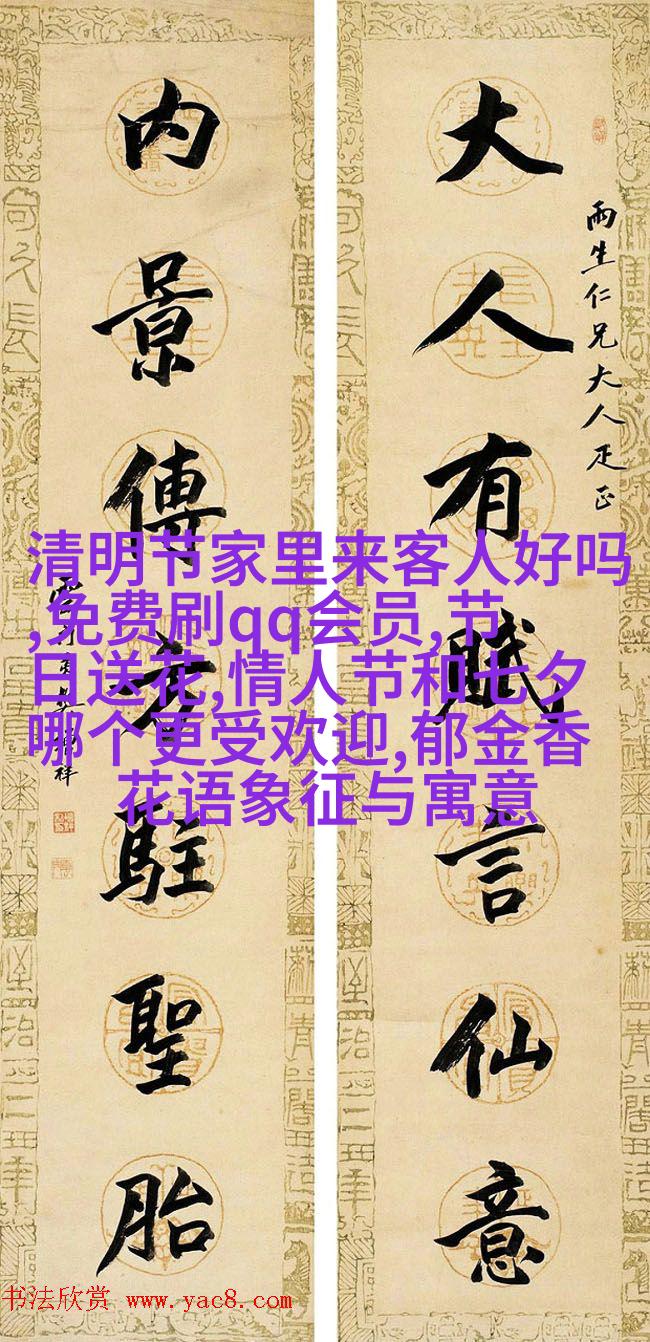 雨生仁兄大人疋正
大人有賦言仙意
内景傳駐聖胎
祥
清明节家里来客人好吗
,免费刷qq会员,节
日送花,情人节和七夕
哪个更受欢迎,郁金香
花语象征与寓意
书法欣赏 www.yac8.com